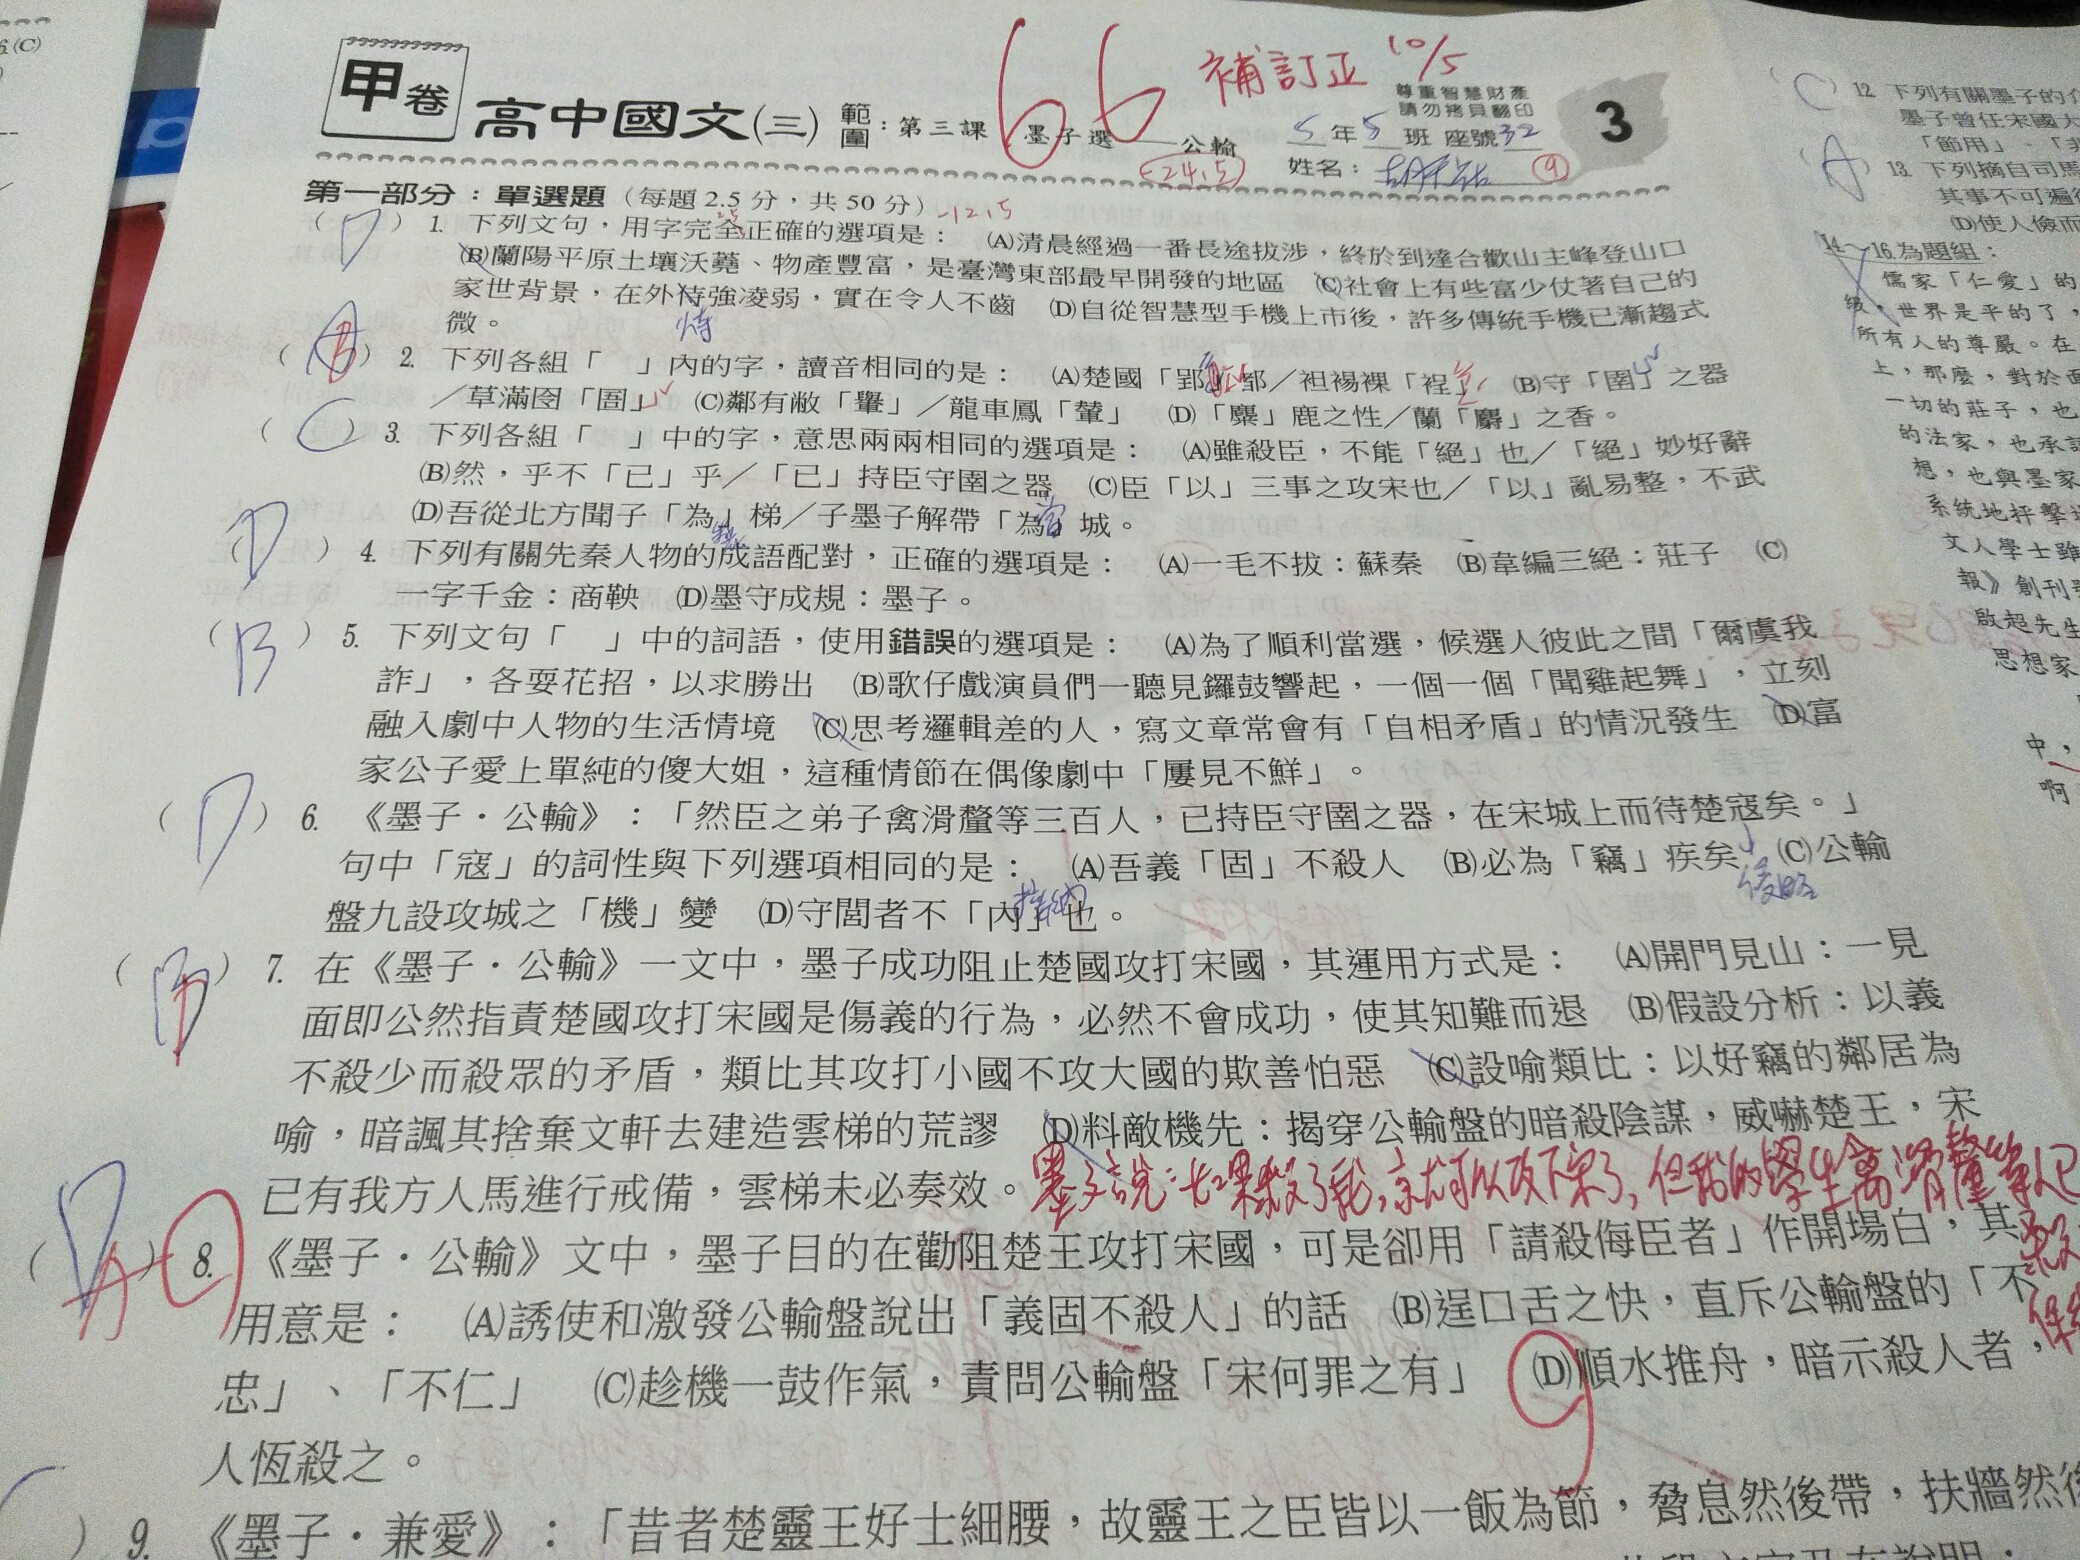 甲卷 高中國文(三) 範圍：第三課 墨子選——公輸
66 補訂正 10/5
尊重智慧財產
請勿拷貝翻印
5年5班 座號32
3
姓名：
(24.5)
9
第一部分：單選題（每題2.5分，共50分）-12.5
(D) 1. 下列文句，用字完全正確的選項是： (A)清晨經過一番長途拔涉，終於到達合歡山主峰登山口
(B)蘭陽平原土壤沃蕘、物產豐富，是臺灣東部最早開發的地區 (C)社會上有些富少仗著自己的
家世背景，在外待強凌弱，實在令人不齒 (D)自從智慧型手機上市後，許多傳統手機已漸趨式
微。
恃
(B) 2. 下列各組「 」內的字，讀音相同的是： (A)楚國「郢」都／袒裼裸「裎」 (B)守「圉」之器
／草滿囹「圄」 (C)鄰有敝「轝」／龍車鳳「輦」 (D)「麋」鹿之性／蘭「麝」之香。
(C) 3. 下列各組「 」中的字，意思兩兩相同的選項是： (A)雖殺臣，不能「絕」也／「絕」妙好辭
(B)然，乎不「已」乎／「已」持臣守圉之器 (C)臣「以」三事之攻宋也／「以」亂易整，不武
(D)吾從北方聞子「為」梯／子墨子解帶「為」城。
當
(D) 4. 下列有關先秦人物的成語配對，正確的選項是： (A)一毛不拔：蘇秦 (B)韋編三絕：莊子 (C)
一字千金：商鞅 (D)墨守成規：墨子。
(B) 5. 下列文句「 」中的詞語，使用錯誤的選項是： (A)為了順利當選，候選人彼此之間「爾虞我
詐」，各耍花招，以求勝出 (B)歌仔戲演員們一聽見鑼鼓響起，一個一個「聞雞起舞」，立刻
融入劇中人物的生活情境 (C)思考邏輯差的人，寫文章常會有「自相矛盾」的情況發生 (D)富
家公子愛上單純的傻大姐，這種情節在偶像劇中「屢見不鮮」。
(D) 6. 《墨子・公輸》：「然臣之弟子禽滑釐等三百人，已持臣守圉之器，在宋城上而待楚寇矣。」
句中「寇」的詞性與下列選項相同的是： (A)吾義「固」不殺人 (B)必為「竊」疾矣 (C)公輸
侵略
盤九設攻城之「機」變 (D)守閭者不「內」也。
接納
(B) 7. 在《墨子・公輸》一文中，墨子成功阻止楚國攻打宋國，其運用方式是： (A)開門見山：一見
面即公然指責楚國攻打宋國是傷義的行為，必然不會成功，使其知難而退 (B)假設分析：以義
不殺少而殺眾的矛盾，類比其攻打小國不攻大國的欺善怕惡 (C)設喻類比：以好竊的鄰居為
喻，暗諷其捨棄文軒去建造雲梯的荒謬 (D)料敵機先：揭穿公輸盤的暗殺陰謀，威嚇楚王，宋
已有我方人馬進行戒備，雲梯未必奏效。
墨子說：如果殺了我，就可以攻下宋了，但我的學生禽滑釐等人已
(A) 8. 《墨子・公輸》文中，墨子目的在勸阻楚王攻打宋國，可是卻用「請殺侮臣者」作開場白，其
用意是： (A)誘使和激發公輸盤說出「義固不殺人」的話 (B)逞口舌之快，直斥公輸盤的「不
忠」、「不仁」 (C)趁機一鼓作氣，責問公輸盤「宋何罪之有」 (D)順水推舟，暗示殺人者，
人恆殺之。
) 9. 《墨子・兼愛》：「昔者楚靈王好士細腰，故靈王之臣皆以一飯為節，脅息然後帶，扶牆然後
(C) 12. 下列有關墨子的
墨子曾任宋國大
「節用」、「非
(A) 13. 下列摘自司馬
其事不可遍
(D)使人儉而
14.～16.為題組：
儒家「仁愛」的
級，世界是平的了，
所有人的尊嚴。在
上，那麼，對於面
一切的莊子，也
的法家，也承
想，也與墨家
系統地抨擊
文人學士雖
報》創刊
啟超先生
思想家
中，
啊
6.(C)